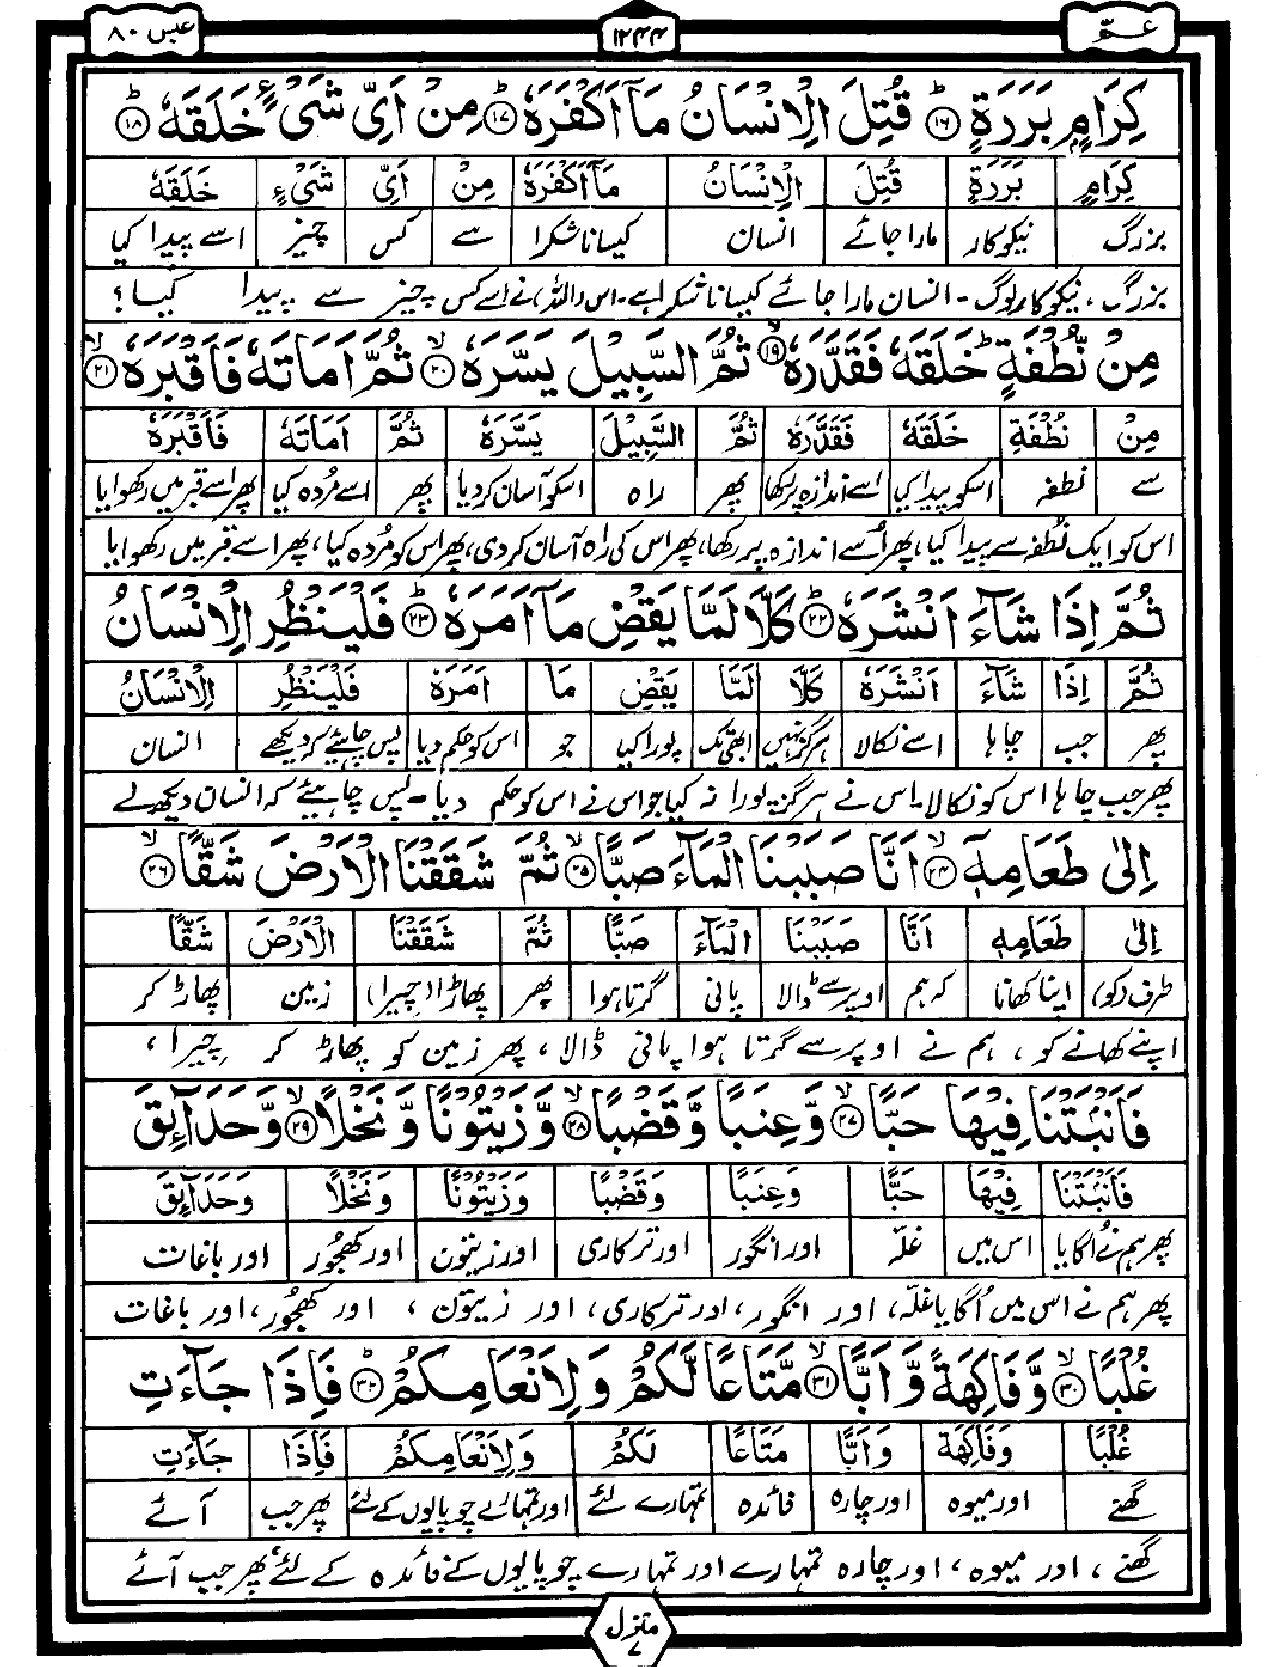 عبس ۸۰
۱۲۴۴
عمّ
كِرَامٍۭ بَرَرَةٍ ؕ﴿۱۶﴾ قُتِلَ الْاِنْسَانُ مَاۤ اَكْفَرَهٗ ؕ﴿۱۷﴾ مِنْ اَیِّ شَیْءٍ خَلَقَهٗ ؕ﴿۱۸﴾
كِرَامٍ بَرَرَةٍ قُتِلَ الْاِنْسَانُ مَاۤ اَكْفَرَهٗ مِنْ اَیِّ شَیْءٍ خَلَقَهٗ
بزرگ نیکوکار مارا جائے انسان کیسا ناشکرا سے کس چیز اسے پیدا کیا
بزرگ، نیکوکار لوگ۔ انسان مارا جائے کیسا ناشکرا ہے۔ اس (اللہ) نے اسے کس چیز سے پیدا کیا؟
مِنْ نُّطْفَةٍ ؕ خَلَقَهٗ فَقَدَّرَهٗ ۙ﴿۱۹﴾ ثُمَّ السَّبِیْلَ یَسَّرَهٗ ۙ﴿۲۰﴾ ثُمَّ اَمَاتَهٗ فَاَقْبَرَهٗ ۙ﴿۲۱﴾
مِنْ نُطْفَةٍ خَلَقَهٗ فَقَدَّرَهٗ ثُمَّ السَّبِیْلَ یَسَّرَهٗ ثُمَّ اَمَاتَهٗ فَاَقْبَرَهٗ
سے نطفہ اسکو پیدا کیا اسے اندازہ پر رکھا پھر راہ اسکو آسان کردیا پھر اسے مُردہ کیا پھر اسے قبر میں رکھوایا
اس کو ایک نُطفہ سے پیدا کیا، پھر اُسے اندازہ پر رکھا، پھر اس کی راہ آسان کر دی، پھر اس کو مُردہ کیا، پھر اسے قبر میں رکھوایا
ثُمَّ اِذَا شَآءَ اَنْشَرَهٗ ؕ﴿۲۲﴾ كَلَّا لَمَّا یَقْضِ مَاۤ اَمَرَهٗ ؕ﴿۲۳﴾ فَلْیَنْظُرِ الْاِنْسَانُ
ثُمَّ اِذَا شَآءَ اَنْشَرَهٗ كَلَّا لَمَّا یَقْضِ مَا اَمَرَهٗ فَلْیَنْظُرِ الْاِنْسَانُ
پھر جب چاہا اسے نکالا ہرگز نہیں ابھی تک پورا کیا جو اس کو حکم دیا پس چاہیئے کہ دیکھے انسان
پھر جب چاہا اس کو نکالا۔ اس نے ہرگز پورا نہ کیا جو اس نے اس کو حکم دیا۔ پس چاہیئے کہ انسان دیکھ لے
اِلٰی طَعَامِهٖۤ ۙ﴿۲۴﴾ اَنَّا صَبَبْنَا الْمَآءَ صَبًّا ۙ﴿۲۵﴾ ثُمَّ شَقَقْنَا الْاَرْضَ شَقًّا ۙ﴿۲۶﴾
اِلٰی طَعَامِهٖ اَنَّا صَبَبْنَا الْمَآءَ صَبًّا ثُمَّ شَقَقْنَا الْاَرْضَ شَقًّا
طرف (کو) اپنا کھانا کہ ہم اوپر سے ڈالا پانی گرتا ہوا پھر پھاڑا (چیرا) زمین پھاڑ کر
اپنے کھانے کو، ہم نے اوپر سے گرتا ہوا پانی ڈالا، پھر زمین کو پھاڑ کر چیرا،
فَاَنْۢبَتْنَا فِیْهَا حَبًّا ۙ﴿۲۷﴾ وَّعِنَبًا وَّقَضْبًا ۙ﴿۲۸﴾ وَّزَیْتُوْنًا وَّنَخْلًا ۙ﴿۲۹﴾ وَّحَدَآئِقَ
فَاَنْۢبَتْنَا فِیْهَا حَبًّا وَعِنَبًا وَقَضْبًا وَزَیْتُوْنًا وَنَخْلًا وَحَدَآئِقَ
پھر ہم نے اُگایا اس میں غلّہ اور انگور اور ترکاری اور زیتون اور کھجُور اور باغات
پھر ہم نے اس میں اُگایا غلّہ، اور انگور، اور ترکاری، اور زیتون، اور کھجُور، اور باغات
غُلْبًا ۙ﴿۳۰﴾ وَّفَاكِهَةً وَّاَبًّا ۙ﴿۳۱﴾ مَّتَاعًا لَّكُمْ وَلِاَنْعَامِكُمْ ؕ﴿۳۲﴾ فَاِذَا جَآءَتِ
غُلْبًا وَفَاكِهَةً وَاَبًّا مَتَاعًا لَكُمْ وَلِاَنْعَامِكُمْ فَاِذَا جَآءَتِ
گھنے اور میوہ اور چارہ فائدہ تمہارے لئے اور تمہارے چوپایوں کے لئے پھر جب آئے
گھنے، اور میوہ، اور چارہ تمہارے اور تمہارے چوپایوں کے فائدہ کے لئے، پھر جب آئے
منزل ۷